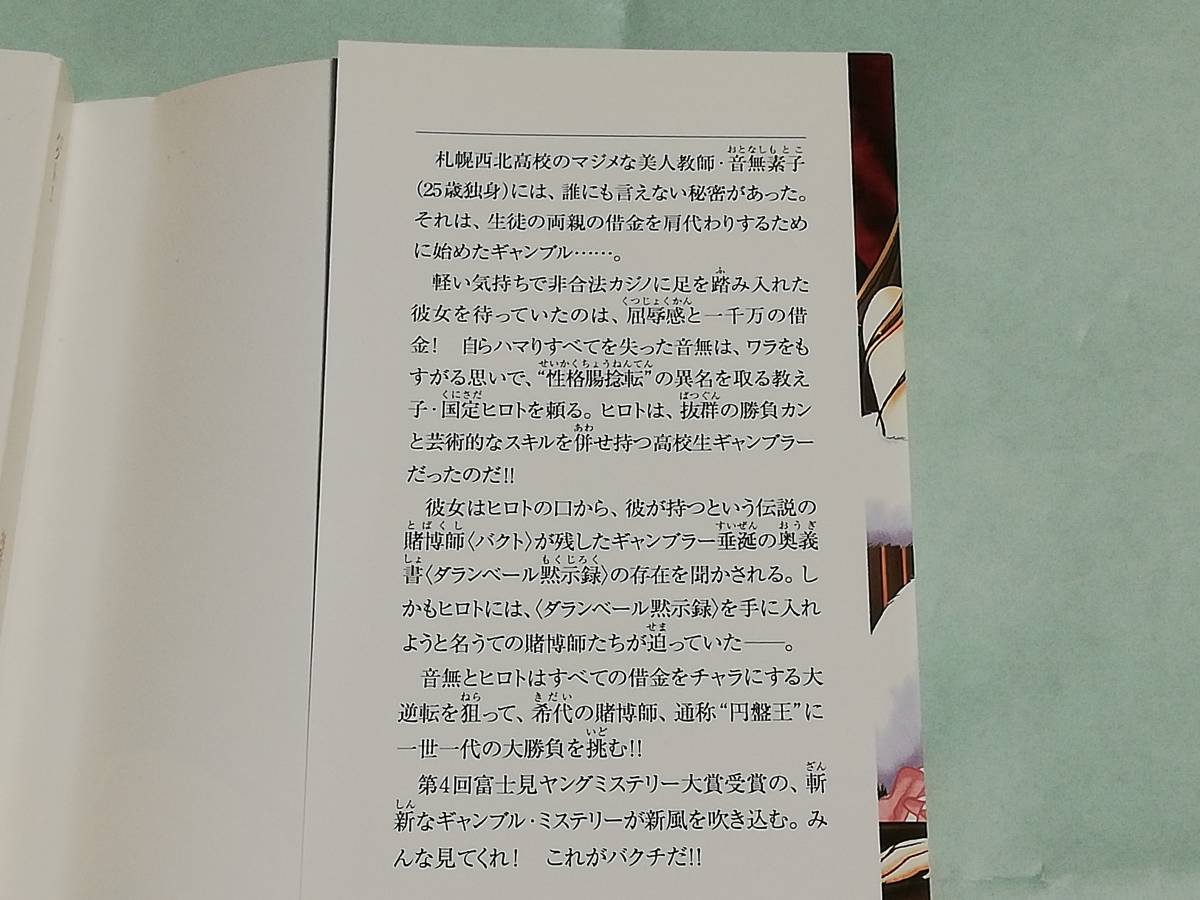 札幌西北高校のマジメな美人教師・音無素子
(25歳独身)には、誰にも言えない秘密があった。
それは、生徒の両親の借金を肩代わりするため
に始めたギャンブル……。
軽い気持ちで非合法カジノに足を踏み入れた
彼女を待っていたのは、屈辱感と一千万の借
金! 自らハマりすべてを失った音無は、ワラをも
すがる思いで、“性格腸捻転”の異名を取る教え
子・国定ヒロトを頼る。ヒロトは、抜群の勝負カン
と芸術的なスキルを併せ持つ高校生ギャンブラー
だったのだ!!
彼女はヒロトの口から、彼が持つという伝説の
賭博師〈バクト〉が残したギャンブラー垂涎の奥義
書〈ダランベール黙示録〉の存在を聞かされる。し
かもヒロトには、〈ダランベール黙示録〉を手に入れ
ようと名うての賭博師たちが迫っていた――。
音無とヒロトはすべての借金をチャラにする大
逆転を狙って、希代の賭博師、通称“円盤王”に
一世一代の大勝負を挑む!!
第4回富士見ヤングミステリー大賞受賞の、斬
新なギャンブル・ミステリーが新風を吹き込む。み
んな見てくれ! これがバクチだ!!